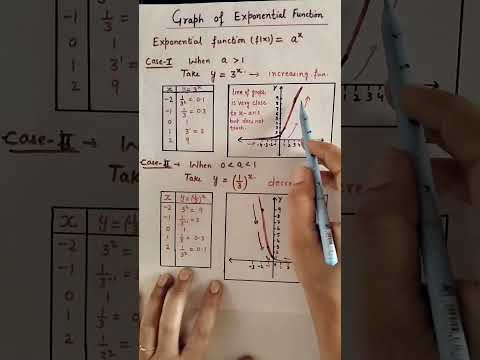 Graph of Exponential Function
Exponential function (f(x)) = aˣ
Case-I When a > 1
Take y = 3ˣ → increasing fun.
x y = 3ˣ
-2 1/3² = 0.1
-1 1/3 = 0.3
0 1
1 3¹ = 3
2 9
Line of graph
is very close
to x-axis
but does not
touch.
Case-II → When 0 < a < 1
Take y = (1/3)ˣ decre
x y = (1/3)ˣ
-2 3² = 9
-1
0 1
1 1/3 = 0.3
2 1/3² = 0.1